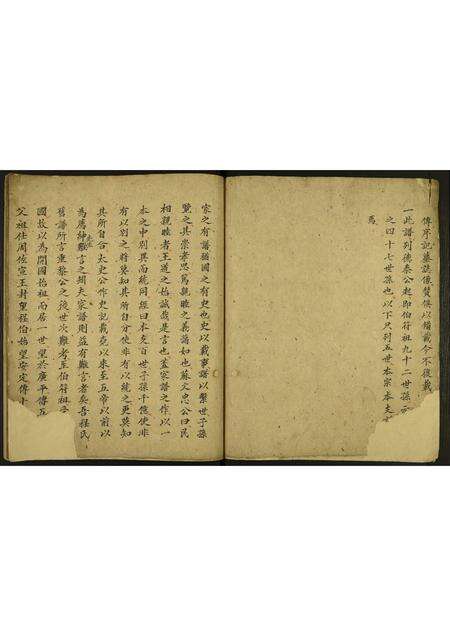 傳序記墓誌像贊俱以續載今不復載
一此譜列德泰公起即伯符祖九十二世孫
之四十七世孫也以下只列五世本宗本支
焉
家之有譜猶國之有史也史以載事譜以繫世子孫
覽之其崇孝思篤親睦之義諸如也蘇文忠公曰民
相親睦者王道之始誠哉是言也蓋家譜之作以一
本之中別異而統同經曰本支百世子孫千億使非
有以別之將莫知其所自分使非有以統之更莫知
其所自合太史公作史記載堯以來至五帝以前以
為薦紳難言之矧夫家譜則益有難言者矣吾程氏
舊譜所言重黎公之後世次難考至伯符祖
國故以為開國始祖而居一世望於廣平傳五
父祖仕周佐宣王封重程伯始望安定傳十